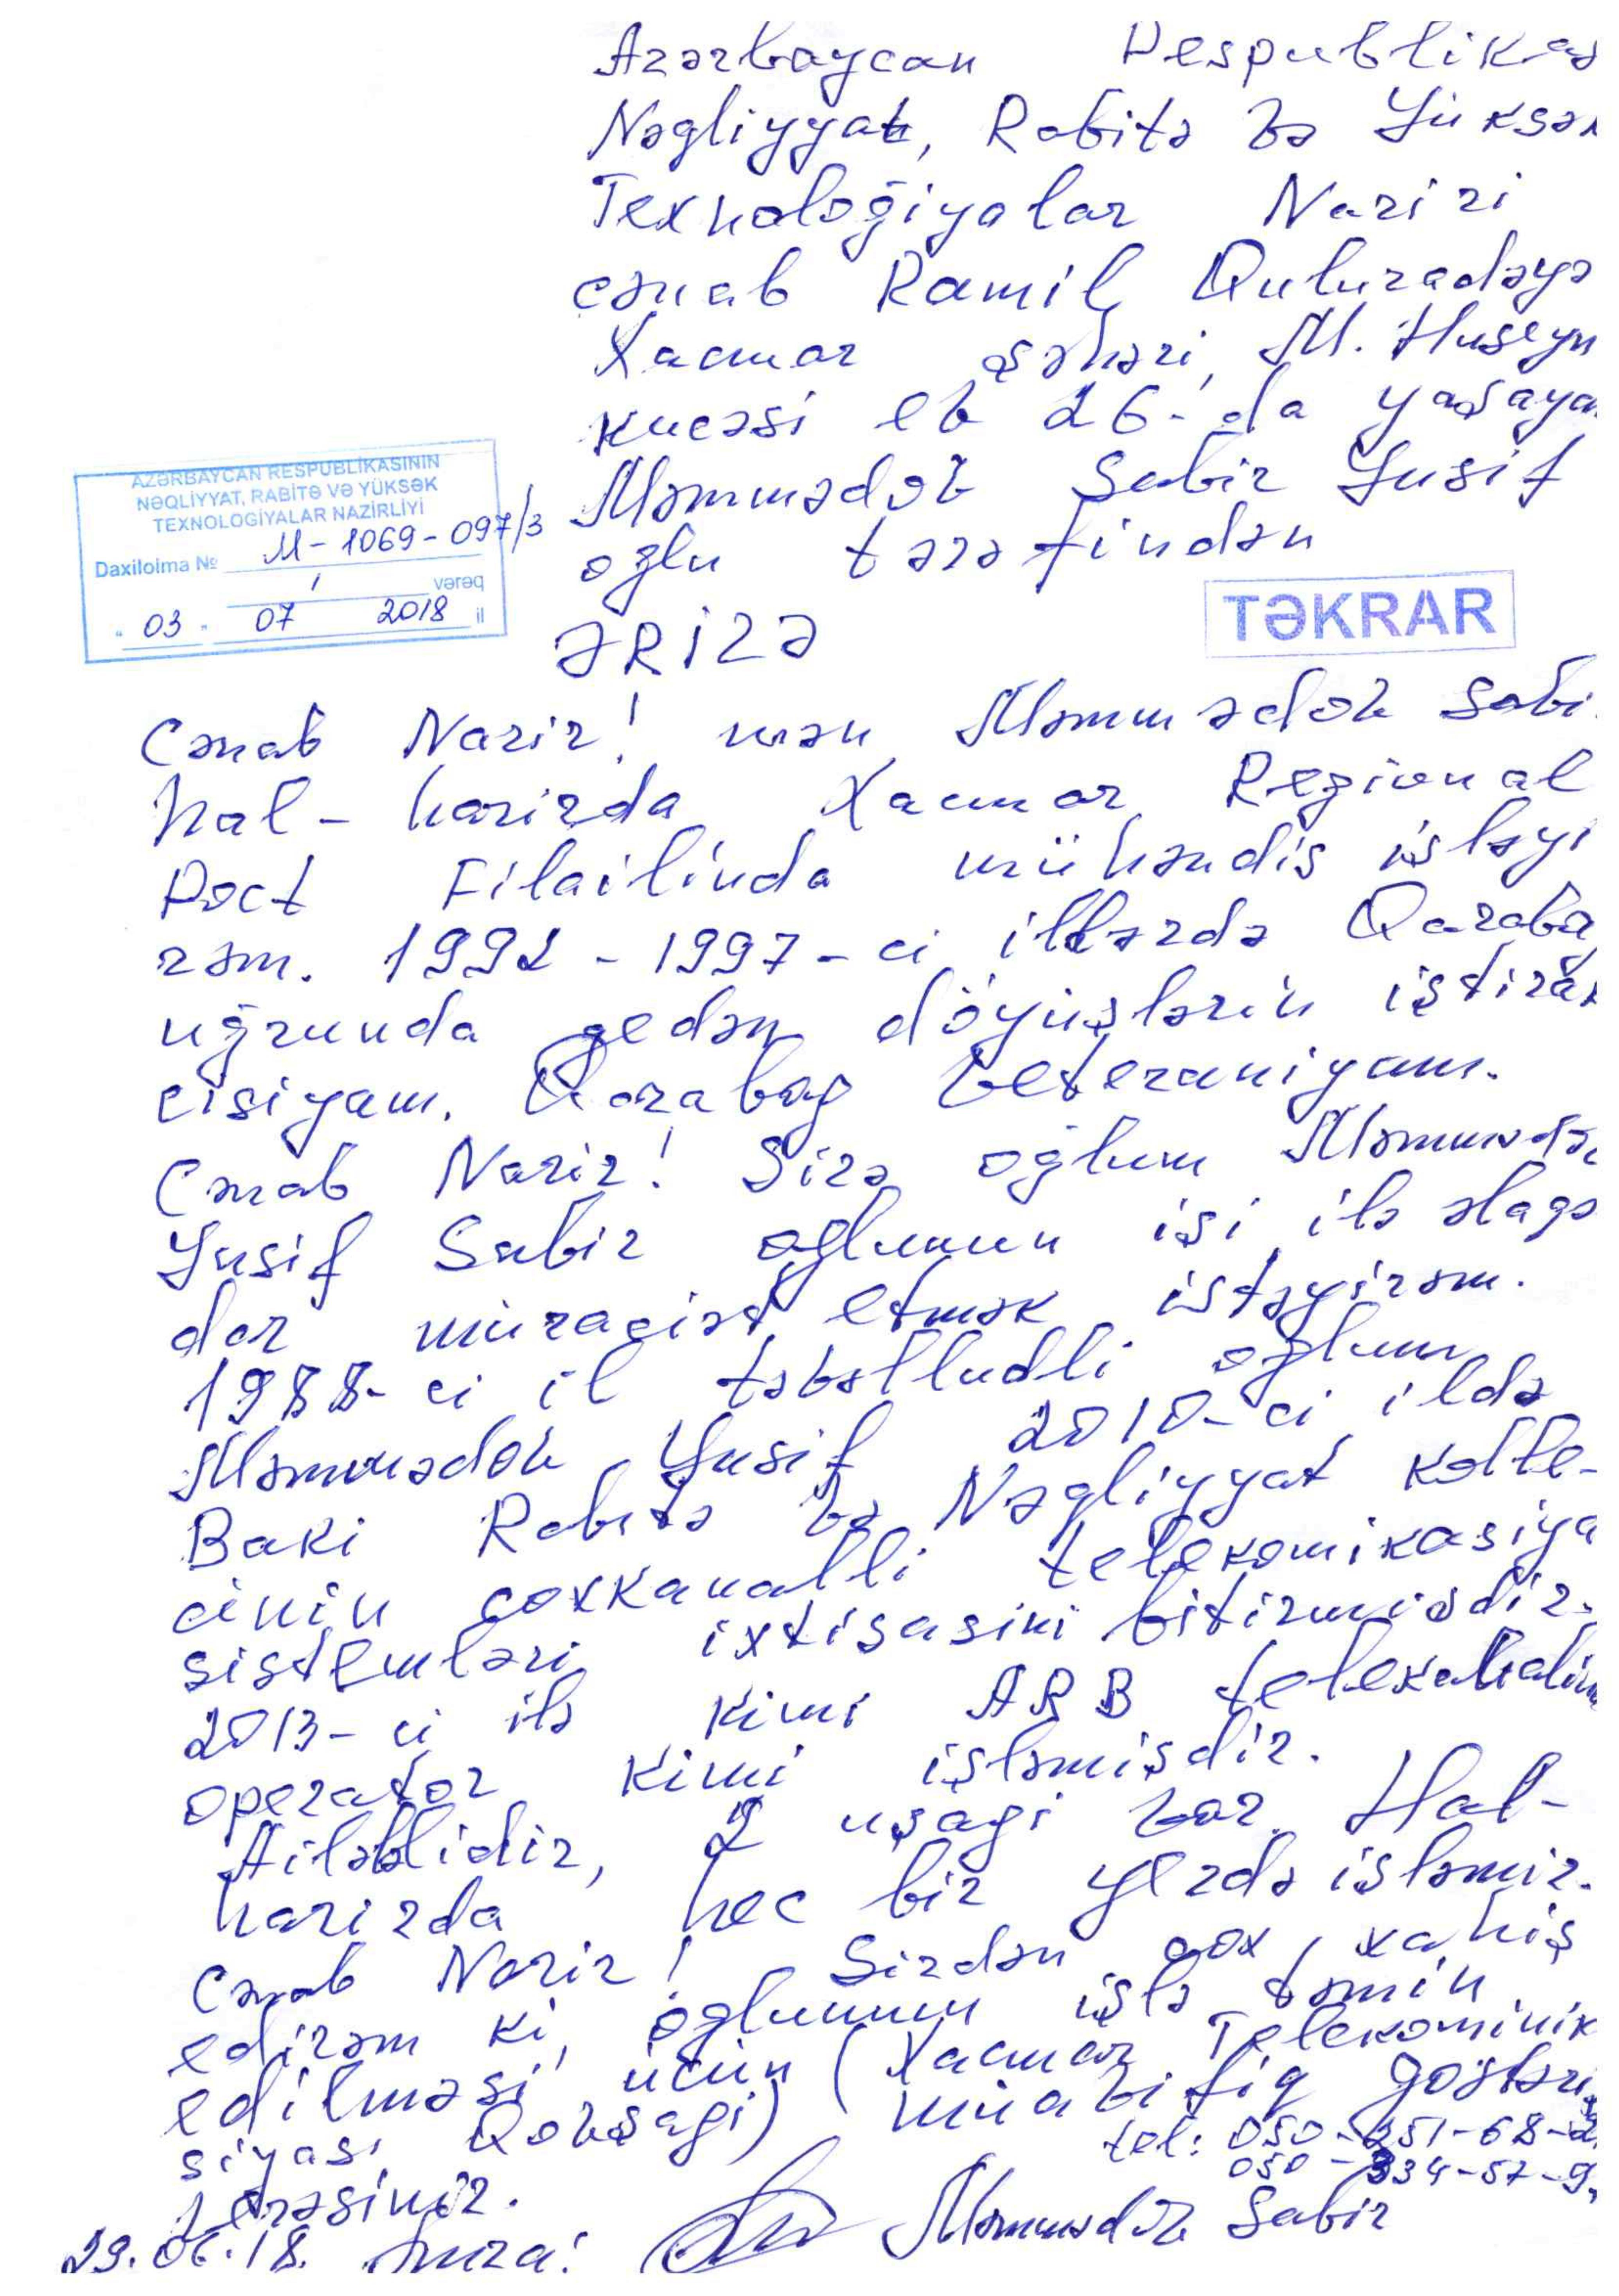 Azərbaycan Respublikas
Nəqliyyat, Rabitə və Yüksə
Texnoloğiyalar Naziri
cənab Ramil Quluzadəyə
Xacmaz şəhəri, M. Huseyn
kucəsi ev 26-da yaşaya
Məmmədov Sabir Yusif
oğlu tərəfindən
AZƏRBAYCAN RESPUBLİKASININ
NƏQLİYYAT, RABİTƏ VƏ YÜKSƏK
TEXNOLOGİYALAR NAZİRLİYİ
Daxilolma № M-1069-097/3
1 vərəq
"03" 07 2018 il
TƏKRAR
ƏRİZƏ
Cənab Nazir! mən Məmmədov Sabi
hal-hazirda Xacmaz Regional
Poct Filailinda mühəndis işləyi
rəm. 1992-1997-ci illərdə Qarabağ
uğrunda gedən döyüşlərin iştirak
cisiyam. Qarabag veteraniyam.
Cənab Nazir! Sizə oğlum Məmmədo
Yusif Sabir oglumun işi ilə əlaqə
dar müraciət etmək istəyirəm.
1988-ci il təvəllüdli oğlum
Məmmədov Yusif 2010-ci ildə
Baki Rabitə və Nəqliyyat kolle-
cinin çoxkanalli telekomikasiya
sistemləri ixtisasini bitirmişdir.
2013-ci ilə kimi ARB telekanalin
operator kimi işləmişdir.
Ailəlidir, 2 uşagi var. Hal-
hazirda hec bir yerdə işləmir.
Cənab Nazir! Sizdən çox xahiş
edirəm ki, oglumun işlə təmin
edilməsi ücün (Xacmaz Telekominik
siyasi Qovşagi) müavifiq göstəri
verəsiniz.
tel: 050-351-68-2
050-334-57-9
29.06.18. Imza: Məmmədov Sabir